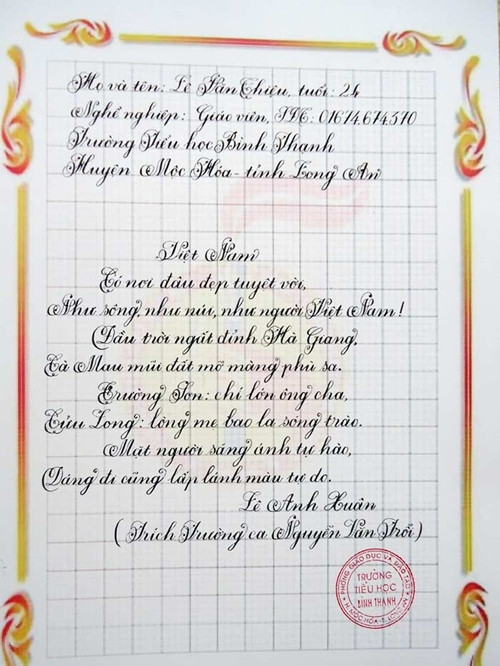 Họ và tên: Lê Tấn Thiệu, tuổi: 24
Nghề nghiệp: Giáo viên, 01674.674.370
Trường Tiểu học Bình Thạnh
Huyện Mộc Hóa - tỉnh Long An
Việt Nam
Có nơi đâu đẹp tuyệt vời,
Như sông, như núi, như người Việt Nam!
Đầu trời ngất đỉnh Hà Giang,
Cà Mau mũi đất mỡ màng phù sa.
Trường Sơn: chí lớn ông cha,
Cửu Long: lòng mẹ bao la sóng trào.
Mặt người sáng ánh tự hào,
Dáng đi cũng lấp lánh màu tự do.
Lê Anh Xuân
(Trích Trường ca Nguyễn Văn Trỗi)
PHÒNG GIÁO DỤC VÀ ĐÀO TẠO
TRƯỜNG
TIỂU HỌC
BÌNH THẠNH
H. MỘC HÓA - T. LONG AN